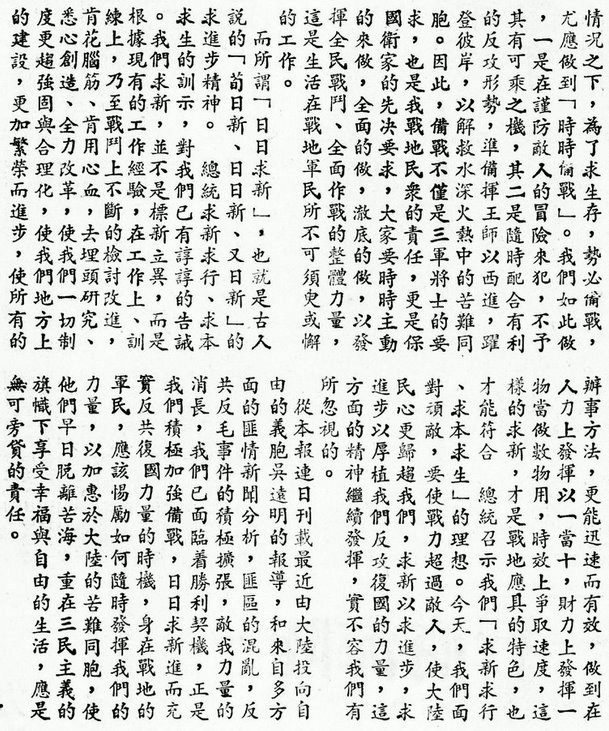 情況之下，為了求生存，勢必備戰，
尤應做到「時時備戰」。我們如此做
，一是在謹防敵人的冒險來犯，不予
其有可乘之機，其二是隨時配合有利
的反攻形勢，準備揮王師以西進，躍
登彼岸，以解救水深火熱中的苦難同
胞。因此，備戰不僅是三軍將士的要
求，也是我戰地民衆的責任，更是保
國衛家的先決要求，大家要時時主動
的來做，全面的做，澈底的做，以發
揮全民戰鬥、全面作戰的整體力量，
這是生活在戰地軍民所不可須臾或懈
的工作。
而所謂「日日求新」，也就是古人
說的「苟日新、日日新、又日新」的
求進步精神。　總統求新求行、求本
求生的訓示，對我們已有諄諄的告誡
。我們求新，並不是標新立異，而是
根據現有的工作經驗，在工作上、訓
練上，乃至戰鬥上不斷的檢討改進，
肯花腦筋、肯用心血，去埋頭研究、
悉心創造、全力改革，使我們一切制
度更超強固與合理化，使我們地方上
的建設，更加繁榮而進步，使所有的
辦事方法，更能迅速而有效，做到在
人力上發揮以一當十，財力上發揮一
物當做數物用，時效上爭取速度，這
樣的求新，才是戰地應具的特色，也
才能符合　總統召示我們「求新求行
、求本求生」的理想。今天，我們面
對頑敵，要使戰力超過敵人，使大陸
民心更歸趨我們，求新以求進步，求
進步以厚植我們反攻復國的力量，這
方面的精神繼續發揮，實不容我們有
所忽視的。
從本報連日刊載最近由大陸投向自
由的義胞吳遠明的報導，和來自多方
面的匪情新聞分析，匪區的混亂，反
共反毛事件的積極擴張，敵我力量的
消長，我們已面臨着勝利契機，正是
我們積極加強備戰，日日求新進而充
實反共復國力量的時機，身在戰地的
軍民，應該惕勵如何隨時發揮我們的
力量，以加惠於大陸的苦難同胞，使
他們早日脫離苦海，重在三民主義的
旗幟下享受幸福與自由的生活，應是
無可旁貸的責任。